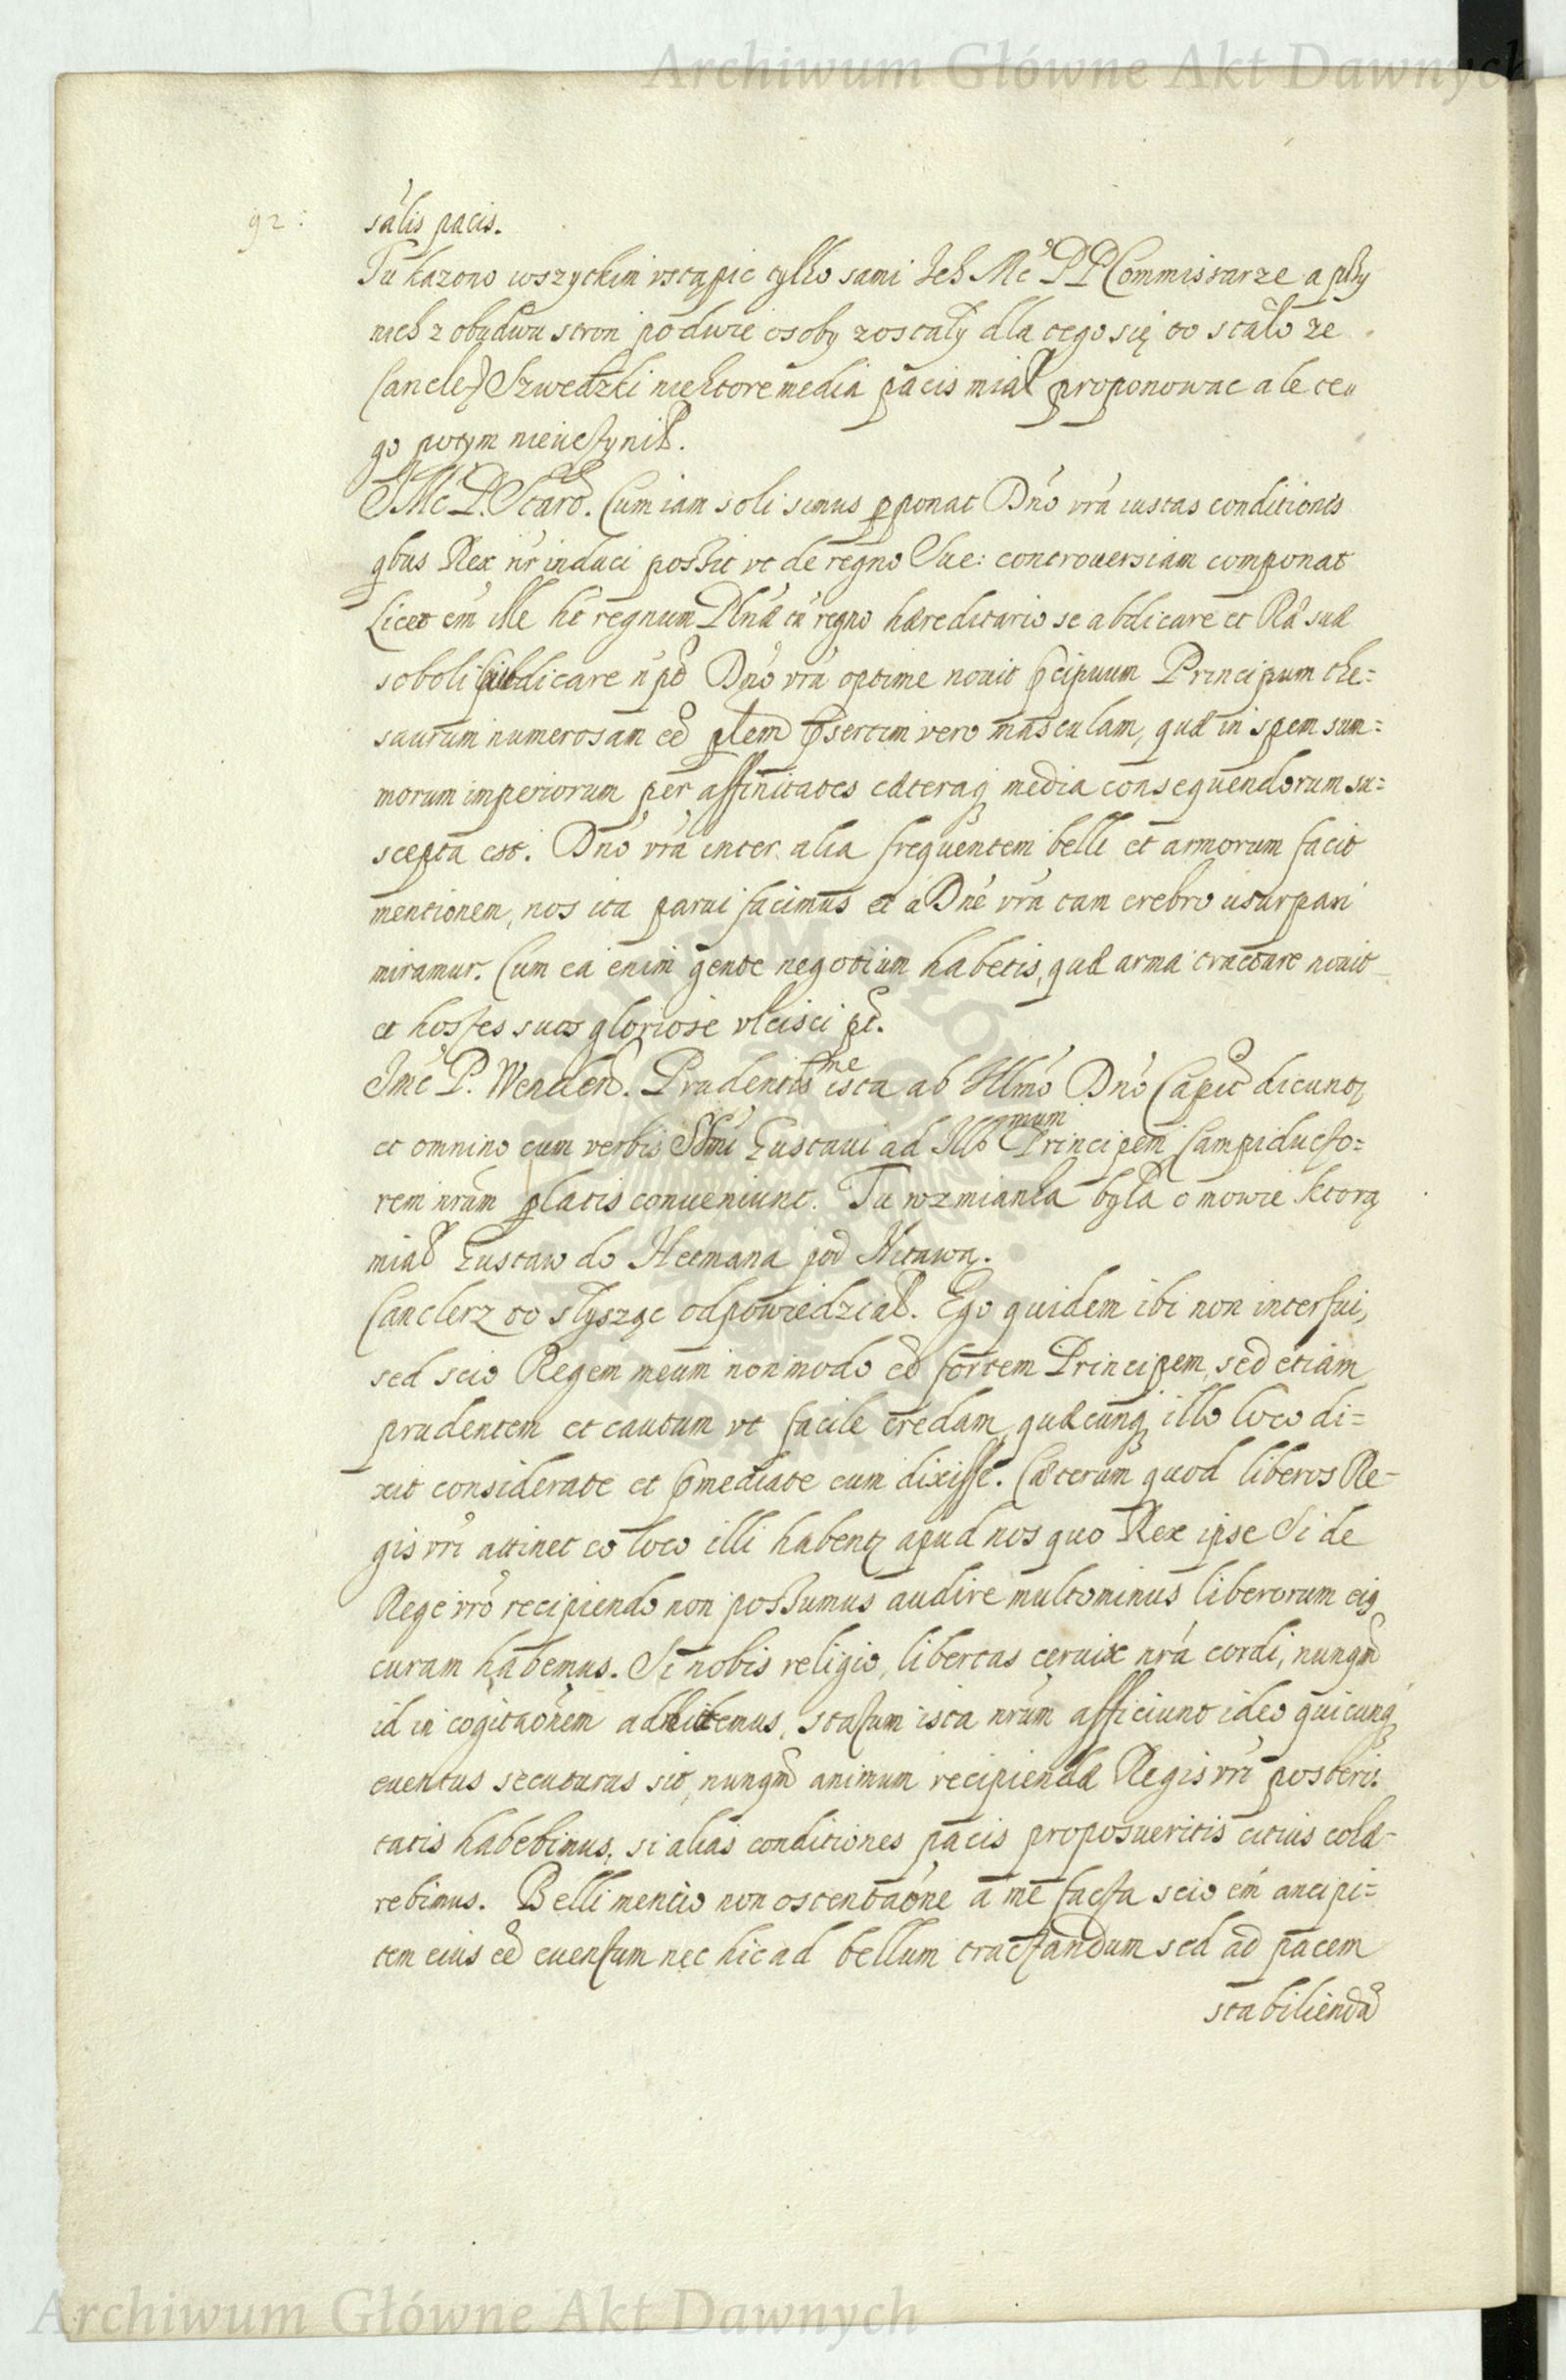 Archiwum Główne Akt Dawnych
92:
salis pacis.
Tu kazono wszytkim vstąpic tylko sami Ich Mc PP Commissarze a przy
nich z obudwu stron po dwie osoby zostały dla tego się to stało ze
Canclerz Szwedzki niektore media pacis miał proponowac ale te„
go potym nieuczynił.
JMc P. Staro. Cum iam soli simus proponat Dno vra iustas conditiones
qbus Rex nr induci possit vt de regno Sue: controuersiam componat
Licet em ille ht regnum Plnæ tn regno hæreditario se abdicare et Ra suæ
soboli dicare n pt Dno vra optime nouit præcipuum Principum the=
saurum numerosam eē plem præsertim vero masculam, quæ in spem sum=
morum imperiorum per affinitates cæteraq media consequendorum su=
scepta est. Dno vra inter alia frequentem belli et armorum facit
mentionem, nos ita parui facimus et a Dne vra tam crebro usurpari
miramur. Cum ea enim gente negotium habetis, quæ arma tractare nouit
et hostes suos gloriose vlcisci pt.
Jmc P. Wenden. Prudentissme ista ab Illmo Dno Capit dicunt
et omnino cum verbis Smi Gustaui ad Illomum Principem Campiducto=
rem nrum platis conueniunt. Tu wzmianka była o mowie ktorą
miał Gustaw do Hetmana pod Mitawą.
Canclerz to słysząc odpowiedział. Ego quidem ibi non interfui,
sed scio Regem meum non modo eē fortem Principem, sed etiam
prudentem et cautum vt facile credam, quæcunq illo loco di=
xit considerate et præmediate eum dixisse. Cæterum quod liberos Re=
gis vri attinet eo loco illi habent apud nos quo Rex ipse Si de
Rege vro recipiendo non possumus audire multominus liberorum eiq
curam habemus. Si nobis religio, libertas ceruix nra cordi, nunqm
id in cogitaonem admittemus, statum ista nrum afficiunt ideo quicunq
euentus secuturus sit, nunqm animum recipiendæ Regis vri posteri=
tatis habebimus, si alias conditiones pacis proposueritis citius cohæ=
rebimus. Belli mentio non ostentaone a me facta scio em ancipi=
tem eius eē euentum nec hic ad bellum tractandum sed ad pacem
stabiliendā
Archiwum Główne Akt Dawnych